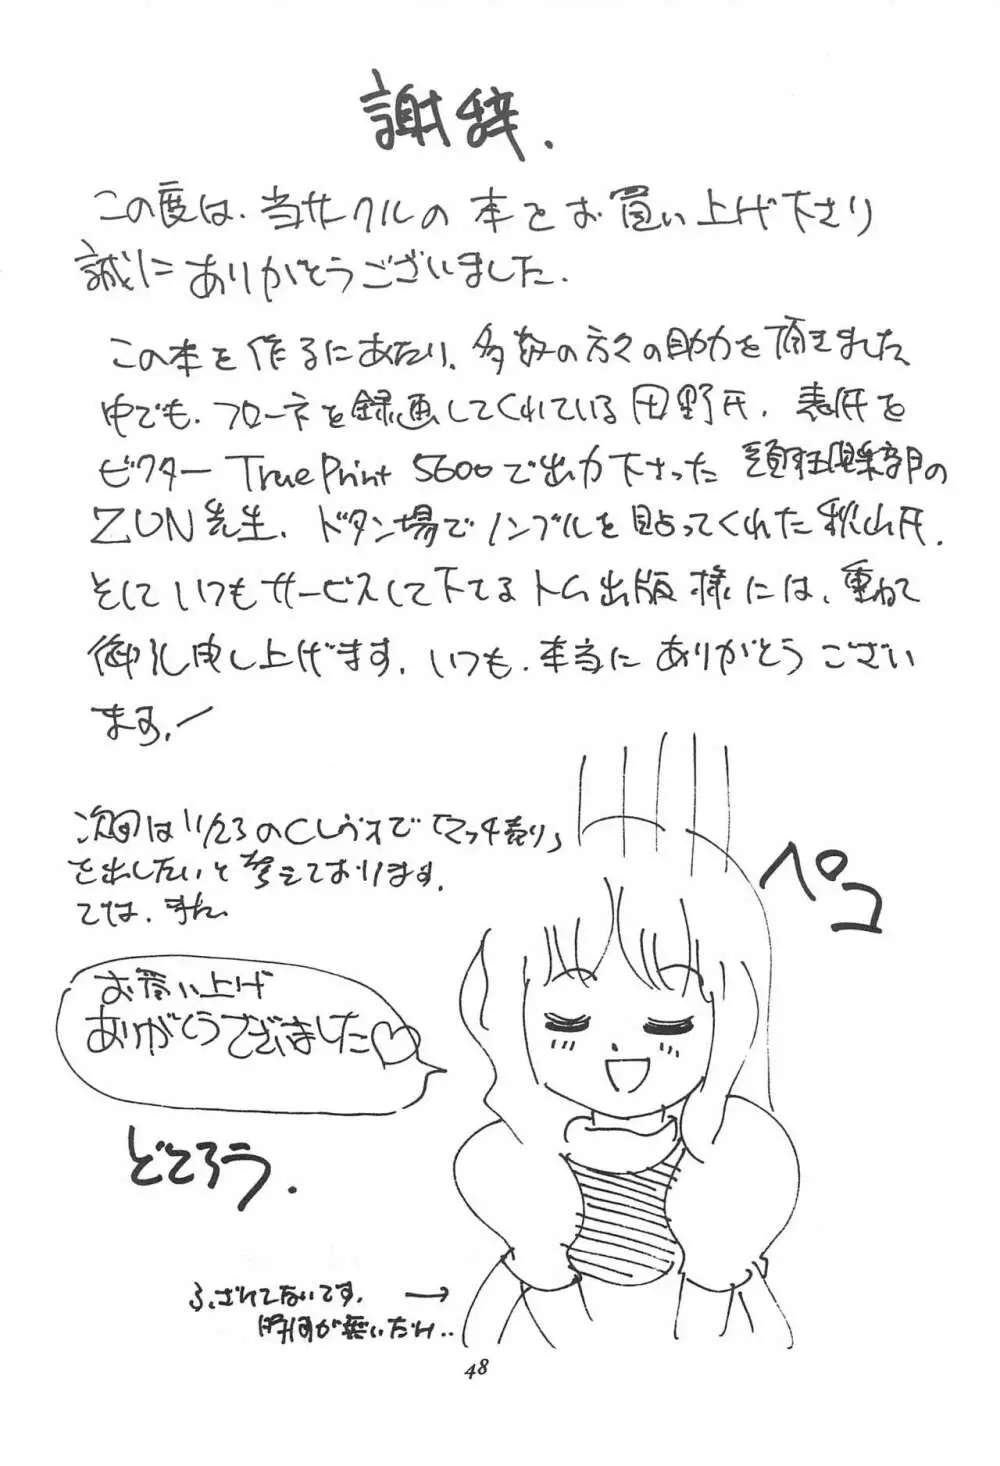 謝辞.
この度は、当サークルの本をお買い上げ下さり
誠にありがとうございました.
この本を作るにあたり、多数の方々の助力を頂きました
中でも、フローネを録画してくれている田野氏、表紙を
ビクター True Print 5600で出力下さった の
ZUN先生、ドタン場でノンブルを貼ってくれた秋山氏、
そしていつもサービスして下さるトム出版様には、重ねて
御礼申し上げます. いつも、本当にありがとうござい
ます.
次回は11/23のCレヴォで「マッチ売り」
を出したいと考えております.
では、また.
ペコ
お買い上げ
ありがとうございました♡
どころう.
ふざけてないです. →
時間が無いだけ..
48